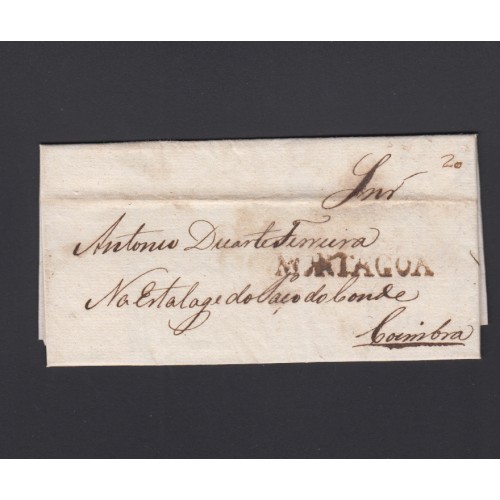 20
Snr
Antonio Duarte Ferreira
MORTAGOA
Na Estalage do Paço do Conde
Coimbra